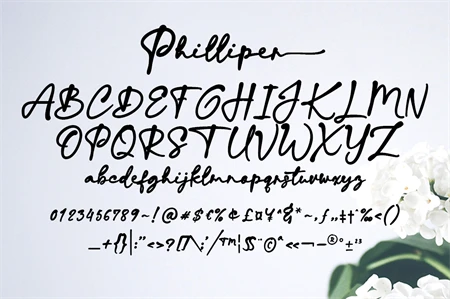 Phillipen
ABCDEFGHIJKLMN
OPQRSTUVWXYZ
abcdefghijklmnopqrstuvwxyz
0123456789~!@#$€%¢£¤¥^&*~,ƒ„‡†‰<()
_+{}|:"<>?[\;'/™]§¨©^«¬®°±²³